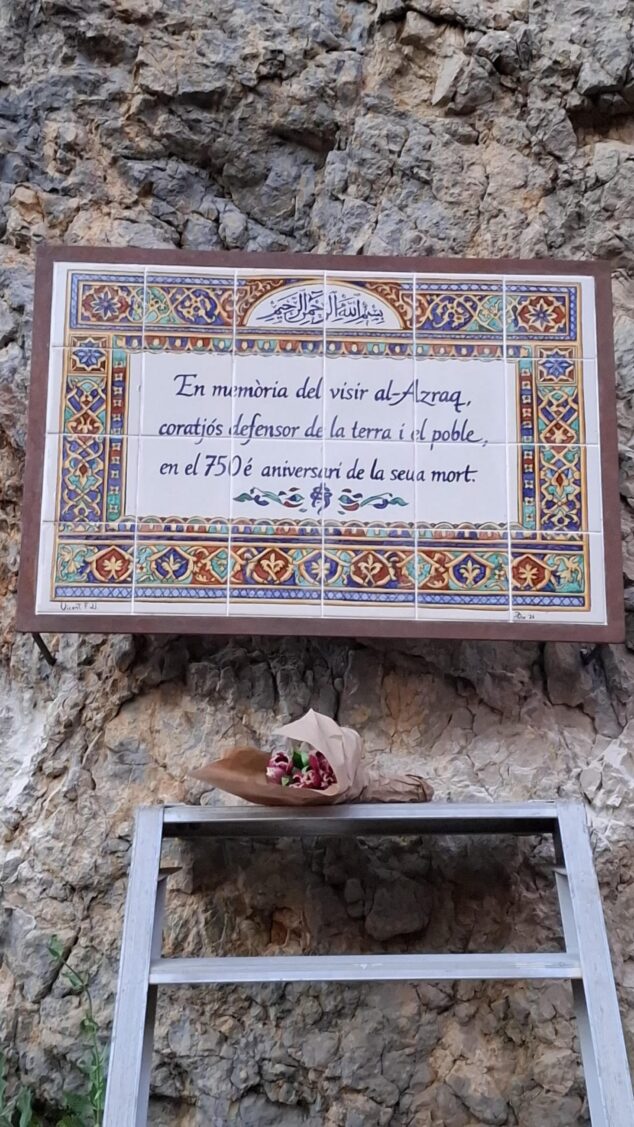 بسم الله الرحمن الرحيم
En memòria del visir al-Azraq,
coratjós defensor de la terra i el poble,
en el 750é aniversari de la seua mort.
Vicent